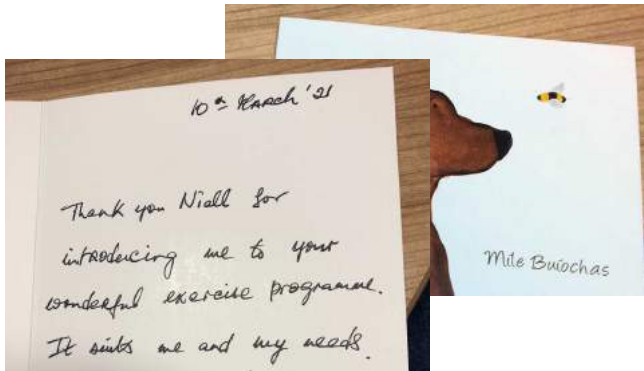 10th March '21
Thank you Niall for
introducing me to your
wonderful exercise programme.
It suits me and my needs.
Míle Buíochas